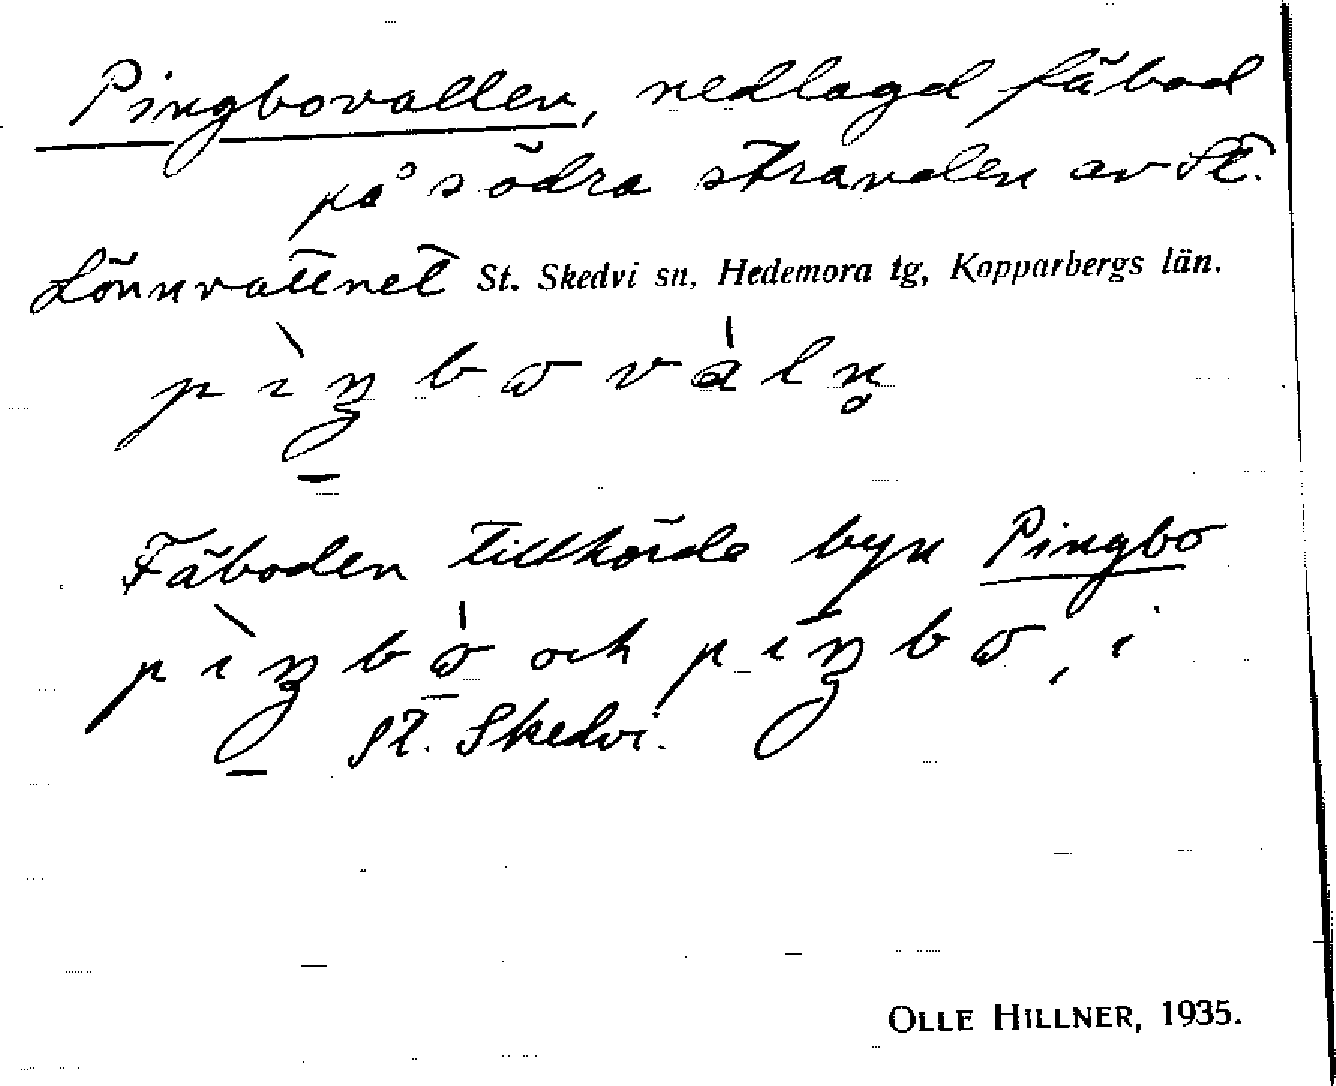 Pingbovallen, nedlagd fäbod
på södra stranden av St.
Lönnvattnet St. Skedvi sn, Hedemora tg, Kopparbergs län.
Fäboden tillhörde byn Pingbo
och , i
St. Skedvi.
OLLE HILLNER, 1935.